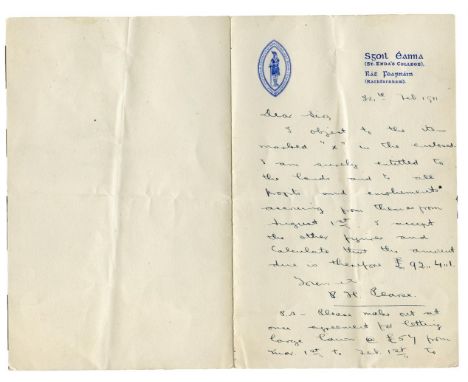 Sgoil Éanna
(St. Enda's College),
Rát Fearnáin
(Rathfarnham).
Feb. 1911
Dear Sirs,
I object to the item
marked "x" in the enclosed
I am surely entitled to
the lands and I all
profits and emoluments
accruing from them from
August 1st. I accept
the other figures and
calculate that the amount
due is therefore £92.4.1.
Yours
P. H. Pearse.
P.S. - Please make out at
once agreement for letting
large lawn @ £54 from
Mar 1st to Feb. 1st, to